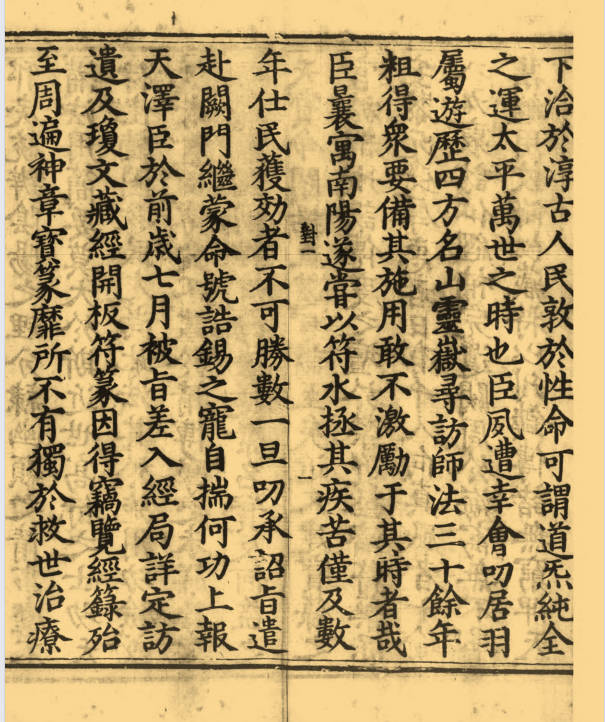 下洽於淳古人民敦於性命可謂道炁純全
之運太平萬世之時也臣夙遭幸會叨居羽
屬遊歷四方名山靈嶽尋訪師法三十餘年
粗得衆要備其施用敢不激勵于其時者哉
臣曩寓南陽遂甞以符水拯其疾苦僅及數
對一
一
年仕民獲効者不可勝數一旦叨承詔旨遣
赴闕門繼蒙命號誥錫之寵自揣何功上報
天澤臣於前歲七月被旨差入經局詳定訪
遺及瓊文藏經開板符篆因得竊覽經籙殆
至周遍神章寶篆靡所不有獨於救世治療